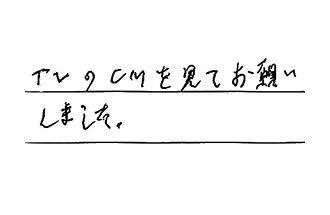 TVのCMを見てお願い
しました。